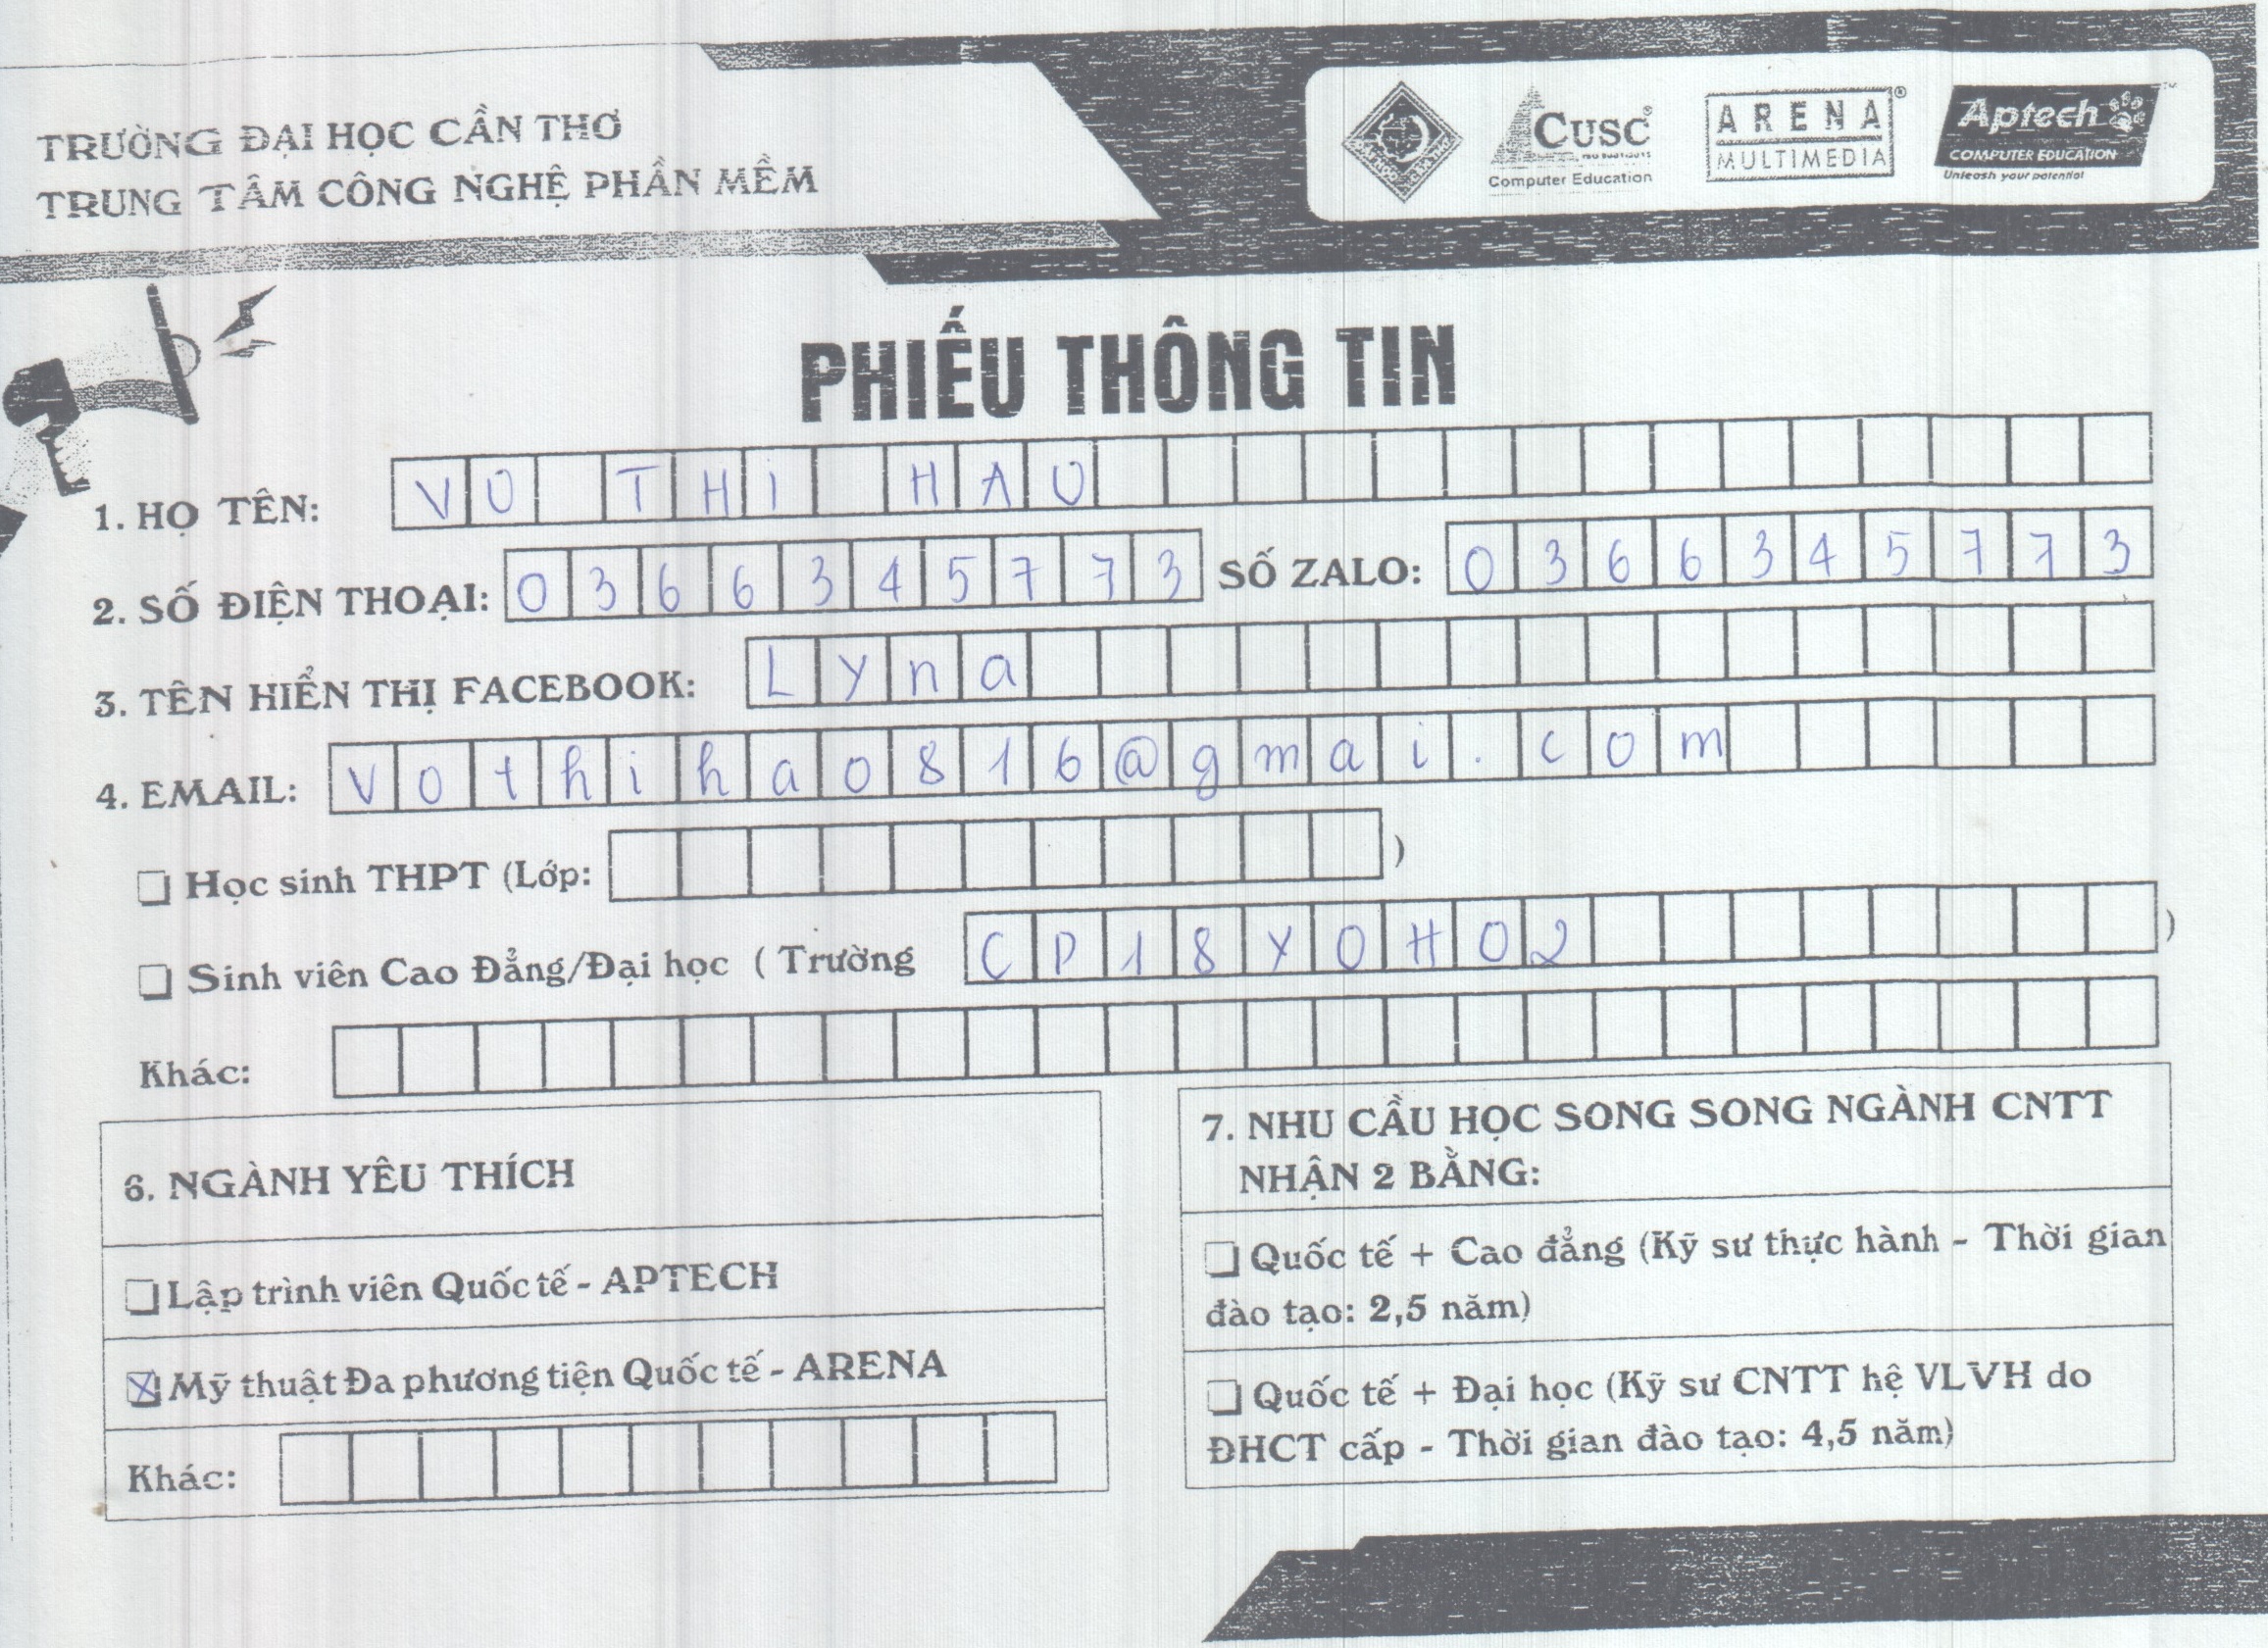 TRƯỜNG ĐẠI HỌC CẦN THƠ
TRUNG TÂM CÔNG NGHỆ PHẦN MỀM
CUSC®
Computer Education
ARENA®
MULTIMEDIA
Aptech™
COMPUTER EDUCATION
Unleash your potential
PHIẾU THÔNG TIN
1. HỌ TÊN: VO THI HAU
2. SỐ ĐIỆN THOẠI: 0366345773 SỐ ZALO: 0366345773
3. TÊN HIỂN THỊ FACEBOOK: Lyna
4. EMAIL: vothihao816@gmai.com
Học sinh THPT (Lớp: )
Sinh viên Cao Đẳng/Đại học ( Trường CP18YOHO2 )
Khác:
6. NGÀNH YÊU THÍCH
Lập trình viên Quốc tế - APTECH
Mỹ thuật Đa phương tiện Quốc tế - ARENA
Khác:
7. NHU CẦU HỌC SONG SONG NGÀNH CNTT
NHẬN 2 BẰNG:
Quốc tế + Cao đẳng (Kỹ sư thực hành - Thời gian
đào tạo: 2,5 năm)
Quốc tế + Đại học (Kỹ sư CNTT hệ VLVH do
ĐHCT cấp - Thời gian đào tạo: 4,5 năm)